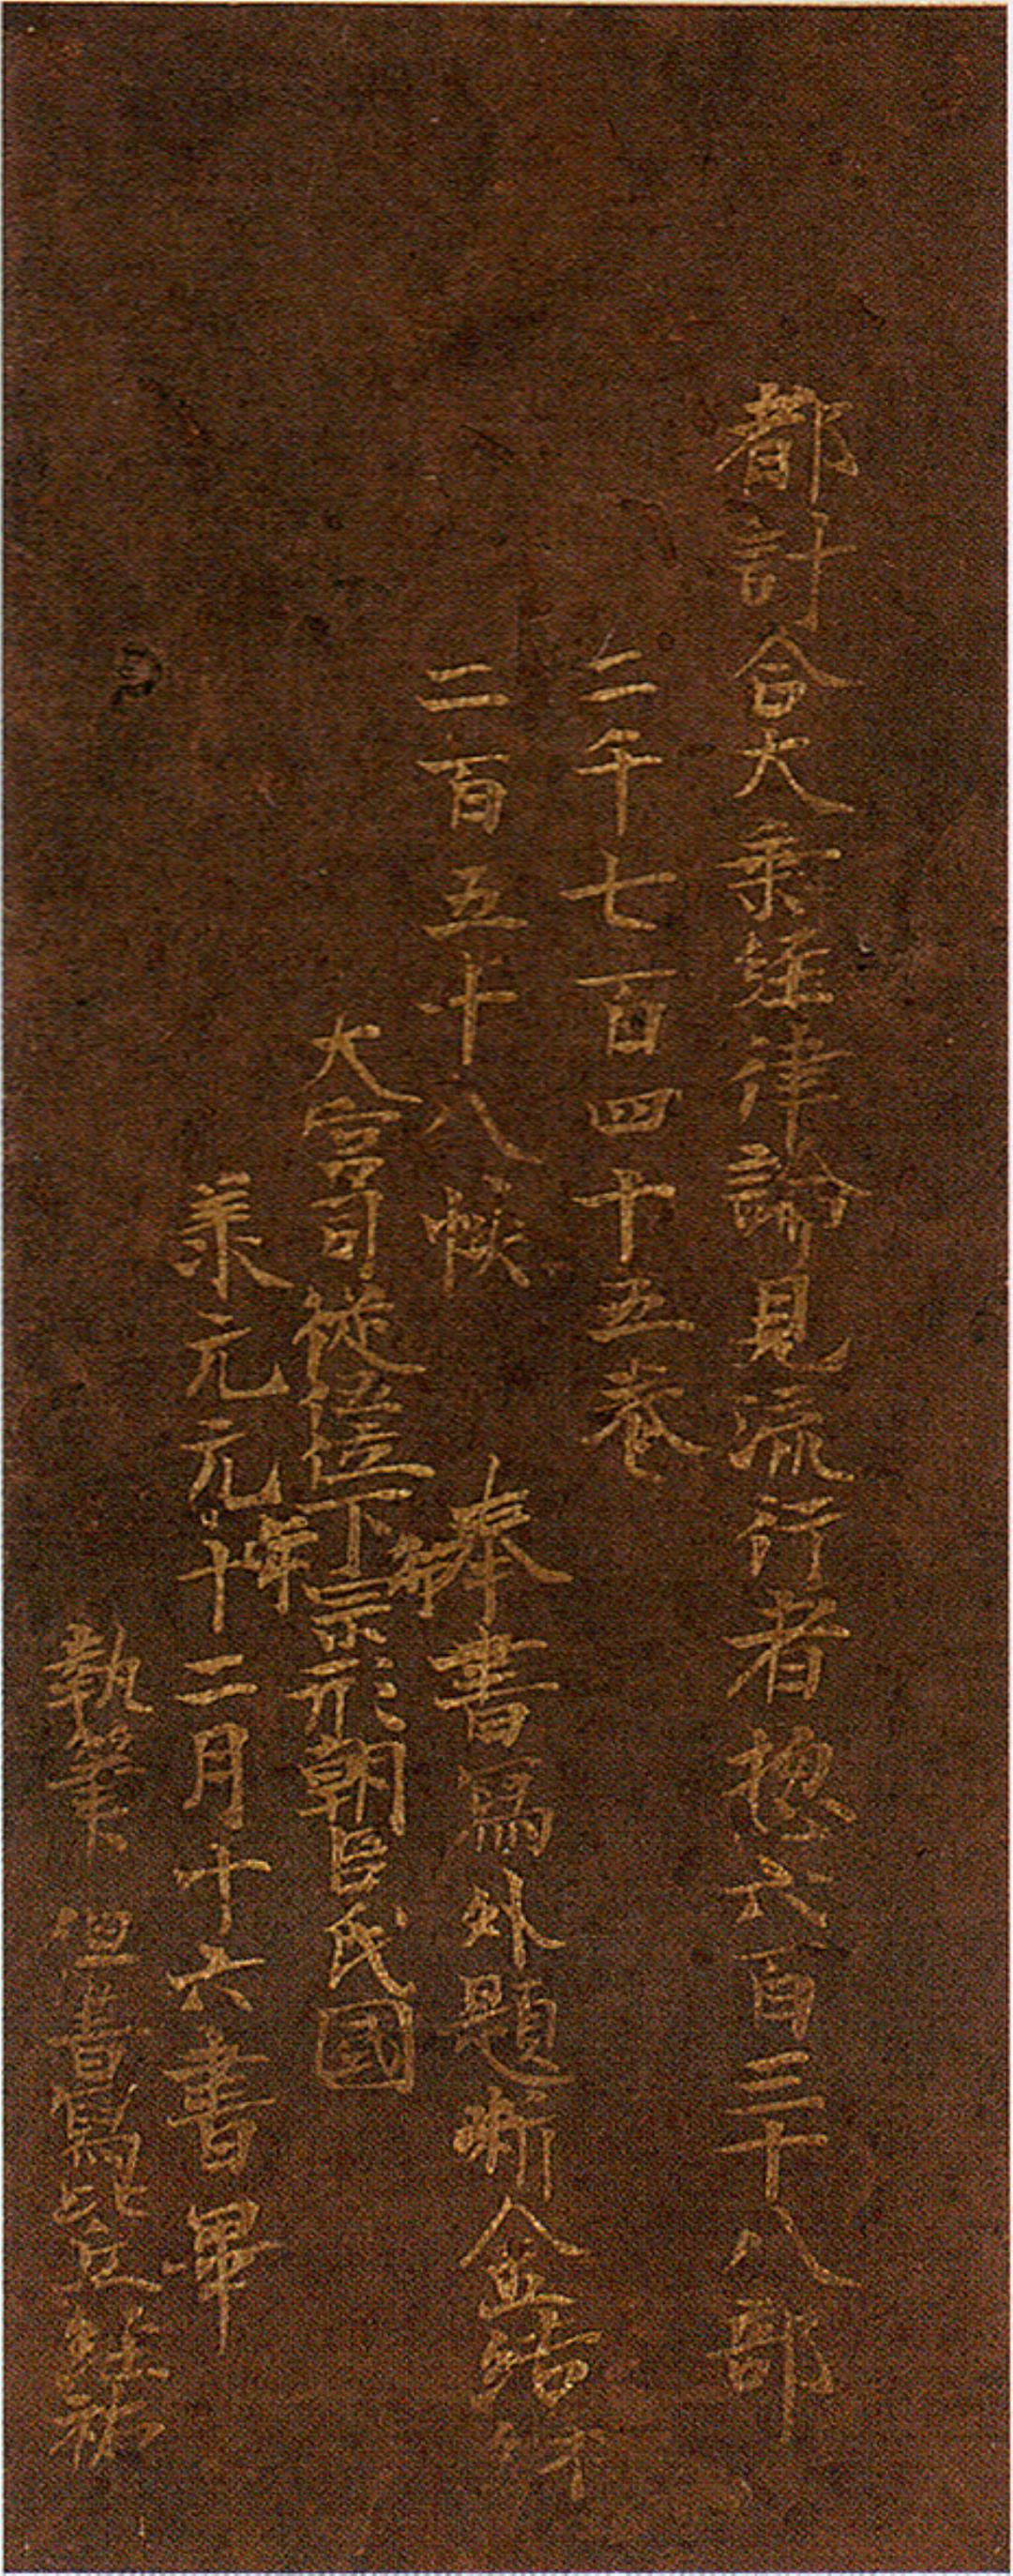 都計合大乘経律論見流行者摠六百三十八部
二千七百四十五卷
二百五十八帙 奉書寫外題
大宮司従位下宗形朝臣氏國
承元元年十二月十六書畢
執筆 但書寫比丘経祐